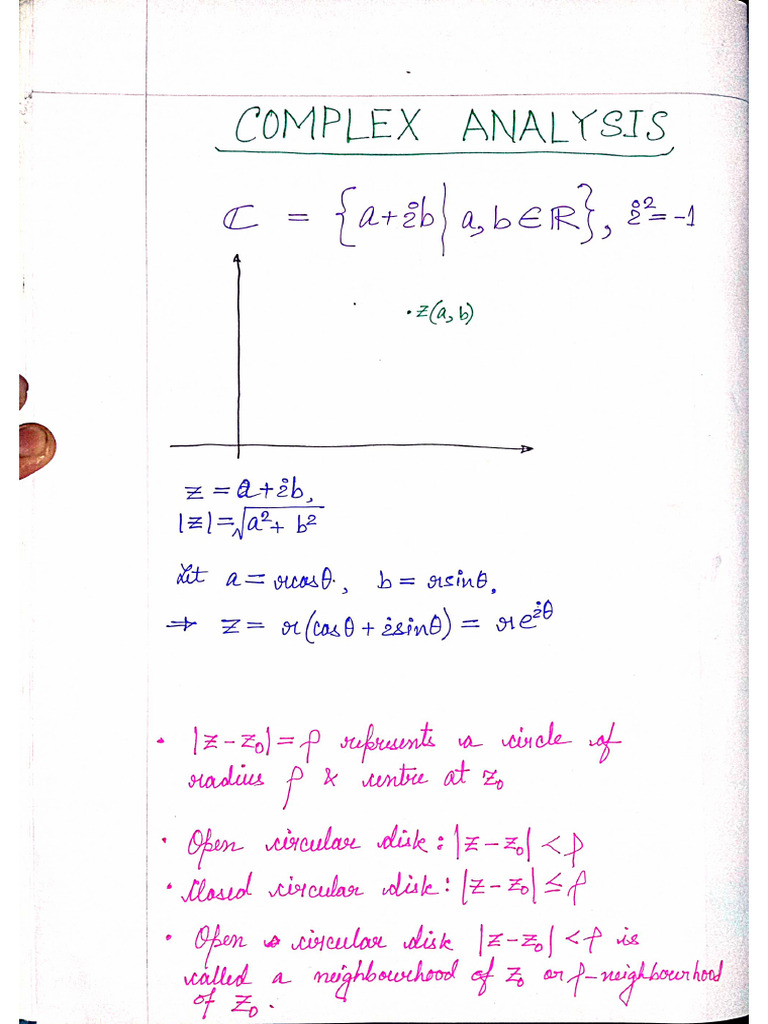 COMPLEX ANALYSIS
ℂ = {a+ib | a, b ∈ ℝ}, i² = -1
z(a, b)
z = a + ib,
|z| = √(a² + b²)
Let a = rcosθ, b = rsinθ,
⇒ z = r(cosθ + isinθ) = re^{iθ}
• |z - z₀| = ρ represents a circle of
radius ρ & centre at z₀
• Open circular disk : |z - z₀| < ρ
• Closed circular disk : |z - z₀| ≤ ρ
• Open circular disk |z - z₀| < ρ is
called a neighbourhood of z₀ or ρ-neighbourhood
of z₀.